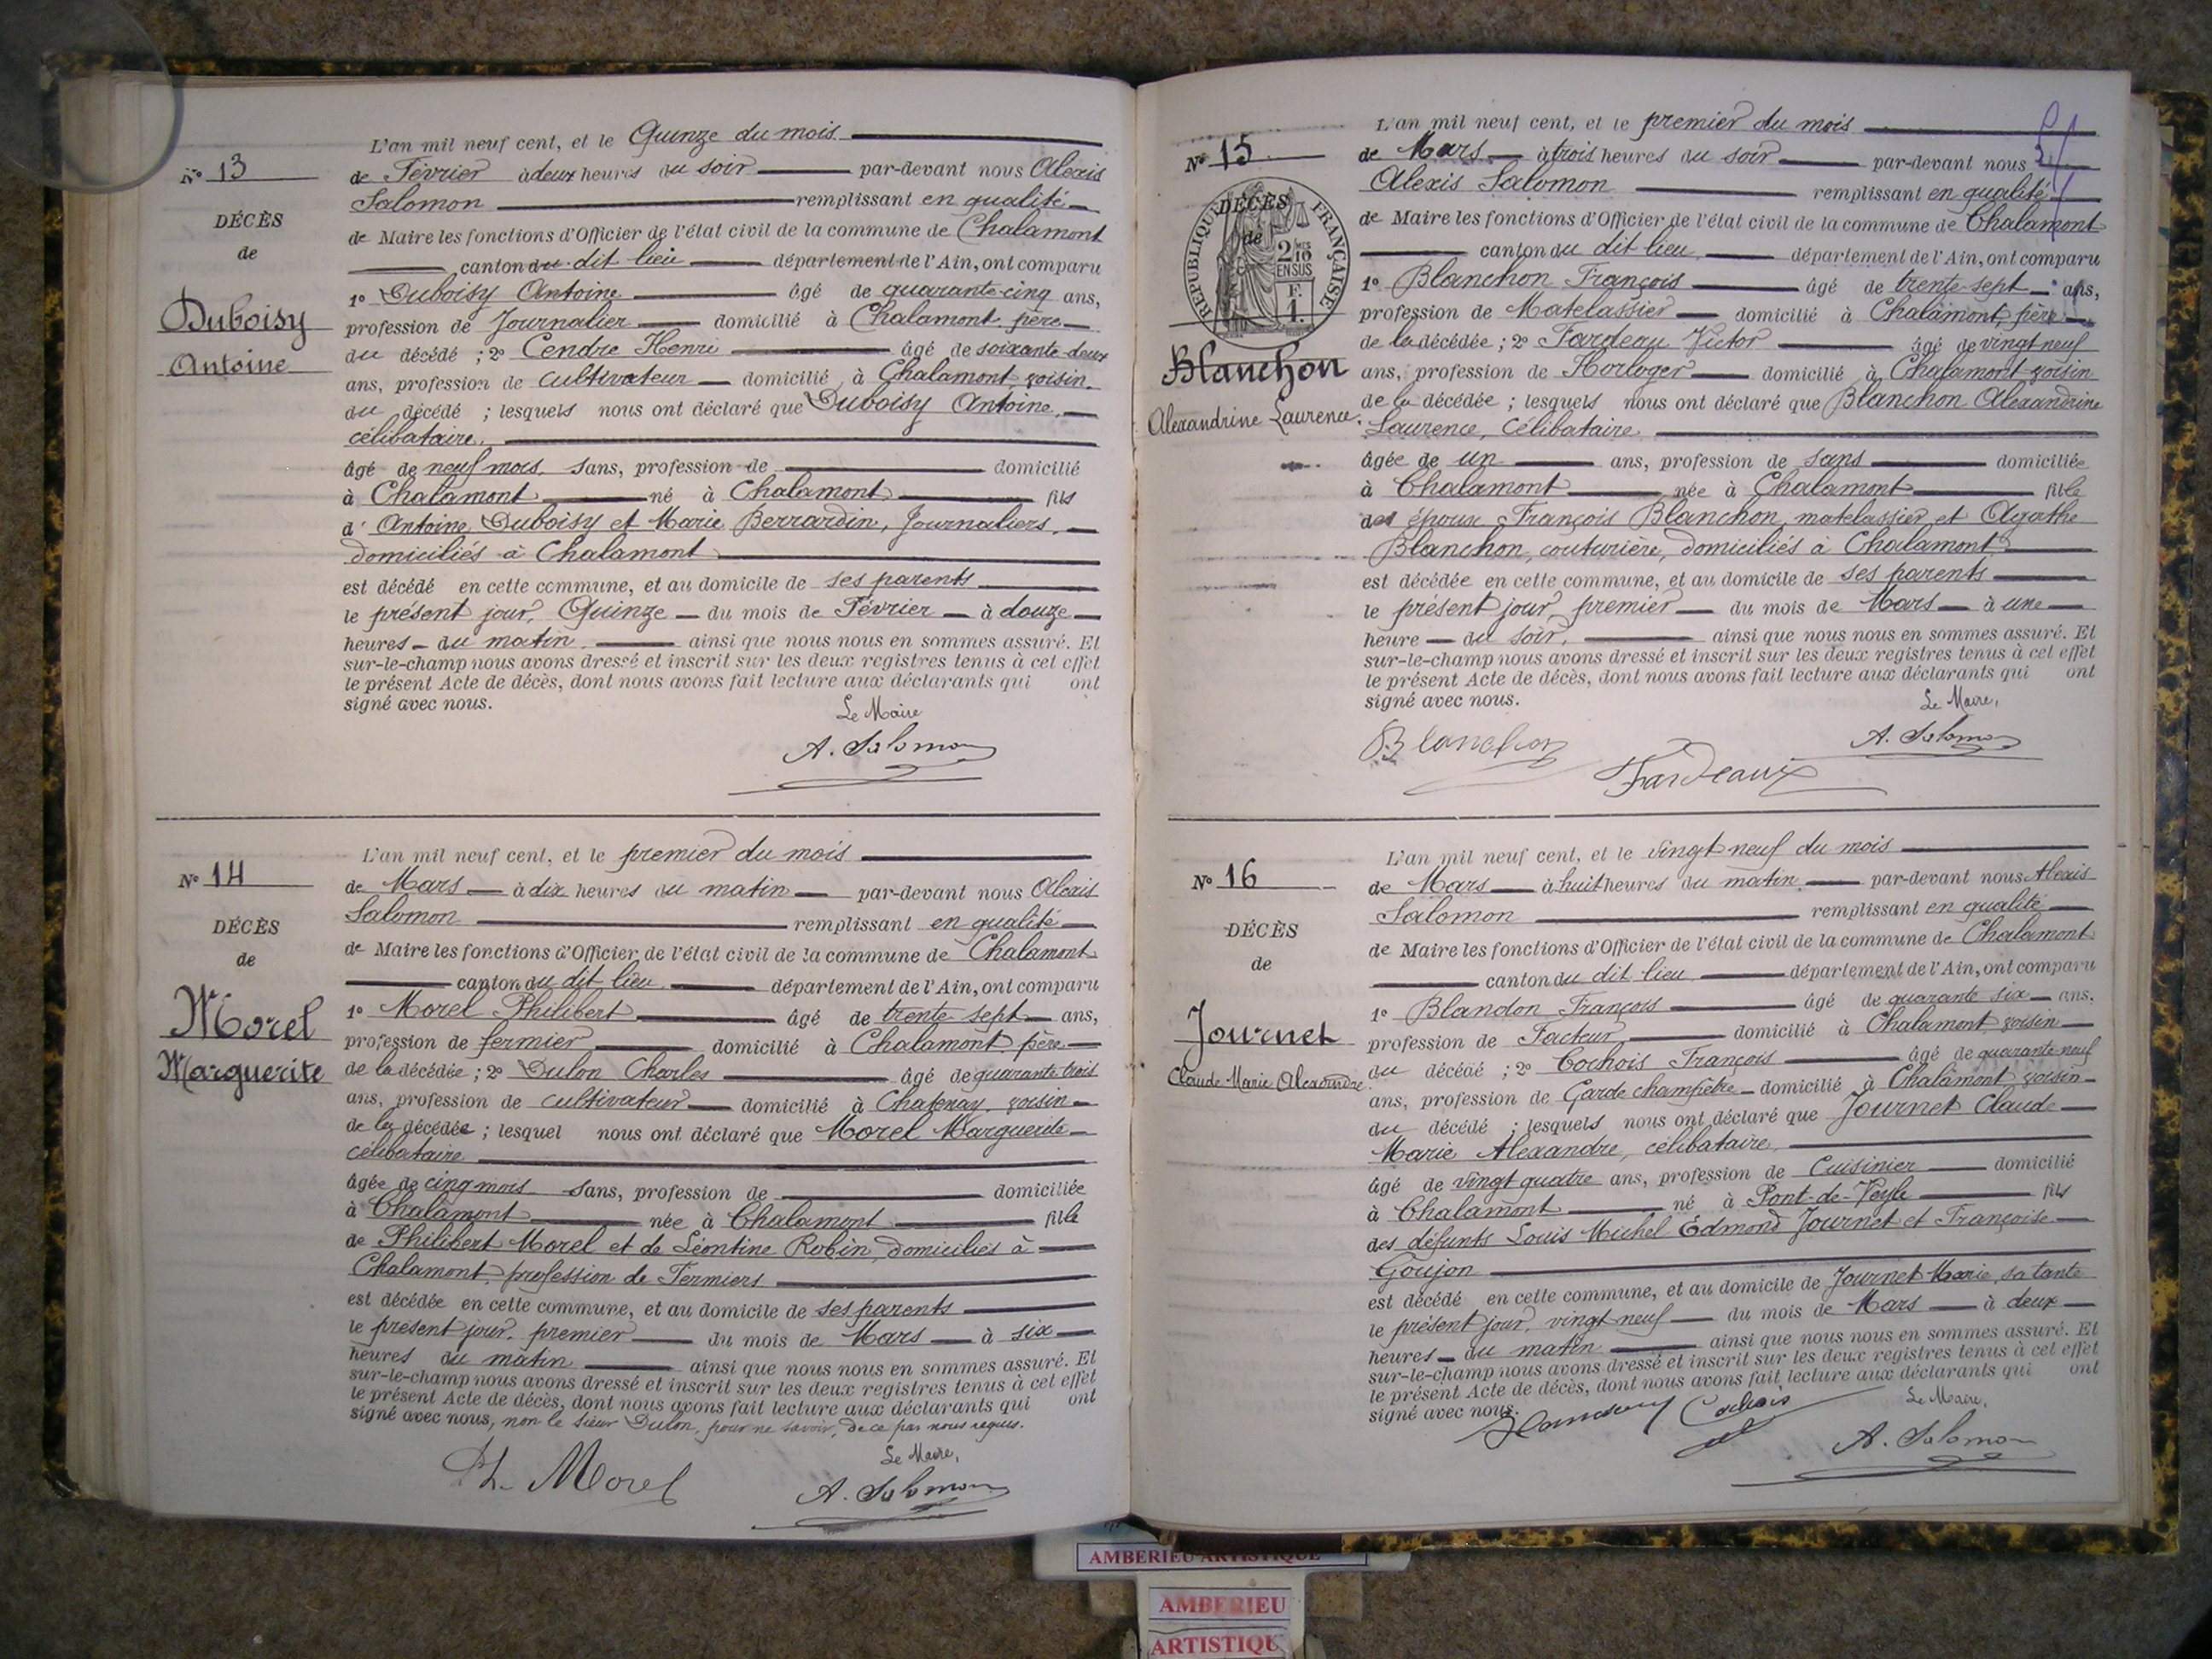 L'an mil neuf cent, et le Quinze du mois
N° 13
de Février à deux heures du soir par-devant nous Alexis
Salomon remplissant en qualité
DÉCÈS
de
de Maire les fonctions d'Officier de l'état civil de la commune de Chalamont
canton du dit lieu département de l'Ain, ont comparu
1° Duboisy Antoine âgé de quarante-cinq ans,
Duboisy
Antoine
profession de Journalier domicilié à Chalamont, père
du décédé ; 2° Cendre Henri âgé de soixante-deux
ans, profession de cultivateur domicilié à Chalamont voisin
du décédé ; lesquels nous ont déclaré que Duboisy Antoine,
célibataire,
âgé de neuf mois, sans, profession de domicilié
à Chalamont né à Chalamont fils
d' Antoine Duboisy et Marie Berrardin, Journaliers,
domiciliés à Chalamont
est décédé en cette commune, et au domicile de ses parents
le présent jour, Quinze du mois de Février à douze
heures du matin ainsi que nous nous en sommes assuré. Et
sur-le-champ nous avons dressé et inscrit sur les deux registres tenus à cet effet
le présent Acte de décès, dont nous avons fait lecture aux déclarants qui ont
signé avec nous.
Le Maire
A. Salomon
L'an mil neuf cent, et le premier du mois
N° 14
de Mars à dix heures du matin par-devant nous Alexis
Salomon remplissant en qualité
DÉCÈS
de
de Maire les fonctions d'Officier de l'état civil de la commune de Chalamont
canton du dit lieu département de l'Ain, ont comparu
Morel
Marguerite
1° Morel Philibert âgé de trente sept ans,
profession de fermier domicilié à Chalamont, père
de la décédée ; 2° Dulon Charles âgé de quarante trois
ans, profession de cultivateur domicilié à Chatenay, voisin
de la décédée ; lesquel nous ont déclaré que Morel Marguerite
célibataire
âgée de cinq mois sans, profession de domiciliée
à Chalamont née à Chalamont fille
de Philibert Morel et de Léontine Robin, domiciliés à
Chalamont, profession de Fermiers
est décédée en cette commune, et au domicile de ses parents
le présent jour, premier du mois de Mars à six
heures du matin ainsi que nous nous en sommes assuré. Et
sur-le-champ nous avons dressé et inscrit sur les deux registres tenus à cet effet
le présent Acte de décès, dont nous avons fait lecture aux déclarants qui ont
signé avec nous, non le sieur Dulon, pour ne savoir, de ce par nous requis.
Le Maire,
Ph. Morel
A. Salomon
L'an mil neuf cent, et le premier du mois
N° 15
de Mars à trois heures du soir par-devant nous
Alexis Salomon remplissant en qualité
DÉCÈS
de
RÉPUBLIQUE FRANÇAISE
2/10
EN SUS
F.
1.
de Maire les fonctions d'Officier de l'état civil de la commune de Chalamont
canton du dit lieu département de l'Ain, ont comparu
1° Blanchon François âgé de trente-sept ans,
profession de Matelassier domicilié à Chalamont, père
de la décédée ; 2° Fardeau Victor âgé de vingt neuf
Blanchon
Alexandrine Laurence
ans, profession de Horloger domicilié à Chalamont voisin
de la décédée ; lesquels nous ont déclaré que Blanchon Alexandrine
Laurence, Célibataire
âgée de un ans, profession de sans domiciliée
à Chalamont née à Chalamont fille
des époux François Blanchon, matelassier et Agathe
Blanchon, couturière, domiciliés à Chalamont
est décédée en cette commune, et au domicile de ses parents
le présent jour premier du mois de Mars à une
heure du soir, ainsi que nous nous en sommes assuré. Et
sur-le-champ nous avons dressé et inscrit sur les deux registres tenus à cet effet
le présent Acte de décès, dont nous avons fait lecture aux déclarants qui ont
signé avec nous.
Le Maire,
Blanchon
A. Salomon
Fardeaux
L'an mil neuf cent, et le vingt neuf du mois
N° 16
de Mars à huit heures du matin par-devant nous Alexis
Salomon remplissant en qualité
DÉCÈS
de
de Maire les fonctions d'Officier de l'état civil de la commune de Chalamont
canton du dit lieu département de l'Ain, ont comparu
Journet
Claude Marie Alexandre
1° Blandon François âgé de quarante six ans,
profession de Facteur domicilié à Chalamont voisin
du décédé ; 2° Cochois François âgé de quarante neuf
ans, profession de Garde champêtre domicilié à Chalamont voisin
du décédé ; lesquels nous ont déclaré que Journet Claude
Marie Alexandre, célibataire,
âgé de vingt quatre ans, profession de Cuisinier domicilié
à Chalamont né à Pont-de-Veyle fils
des défunts Louis Michel Edmond Journet et Françoise
Goujon
est décédé en cette commune, et au domicile de Journet Marie, sa tante
le présent jour, vingt neuf du mois de Mars à deux
heures du matin ainsi que nous nous en sommes assuré. Et
sur-le-champ nous avons dressé et inscrit sur les deux registres tenus à cet effet
le présent Acte de décès, dont nous avons fait lecture aux déclarants qui ont
signé avec nous.
Cochois
Le Maire,
A. Salomon
AMBERIEU ARTISTIQUE
AMBERIEU
ARTISTIQU